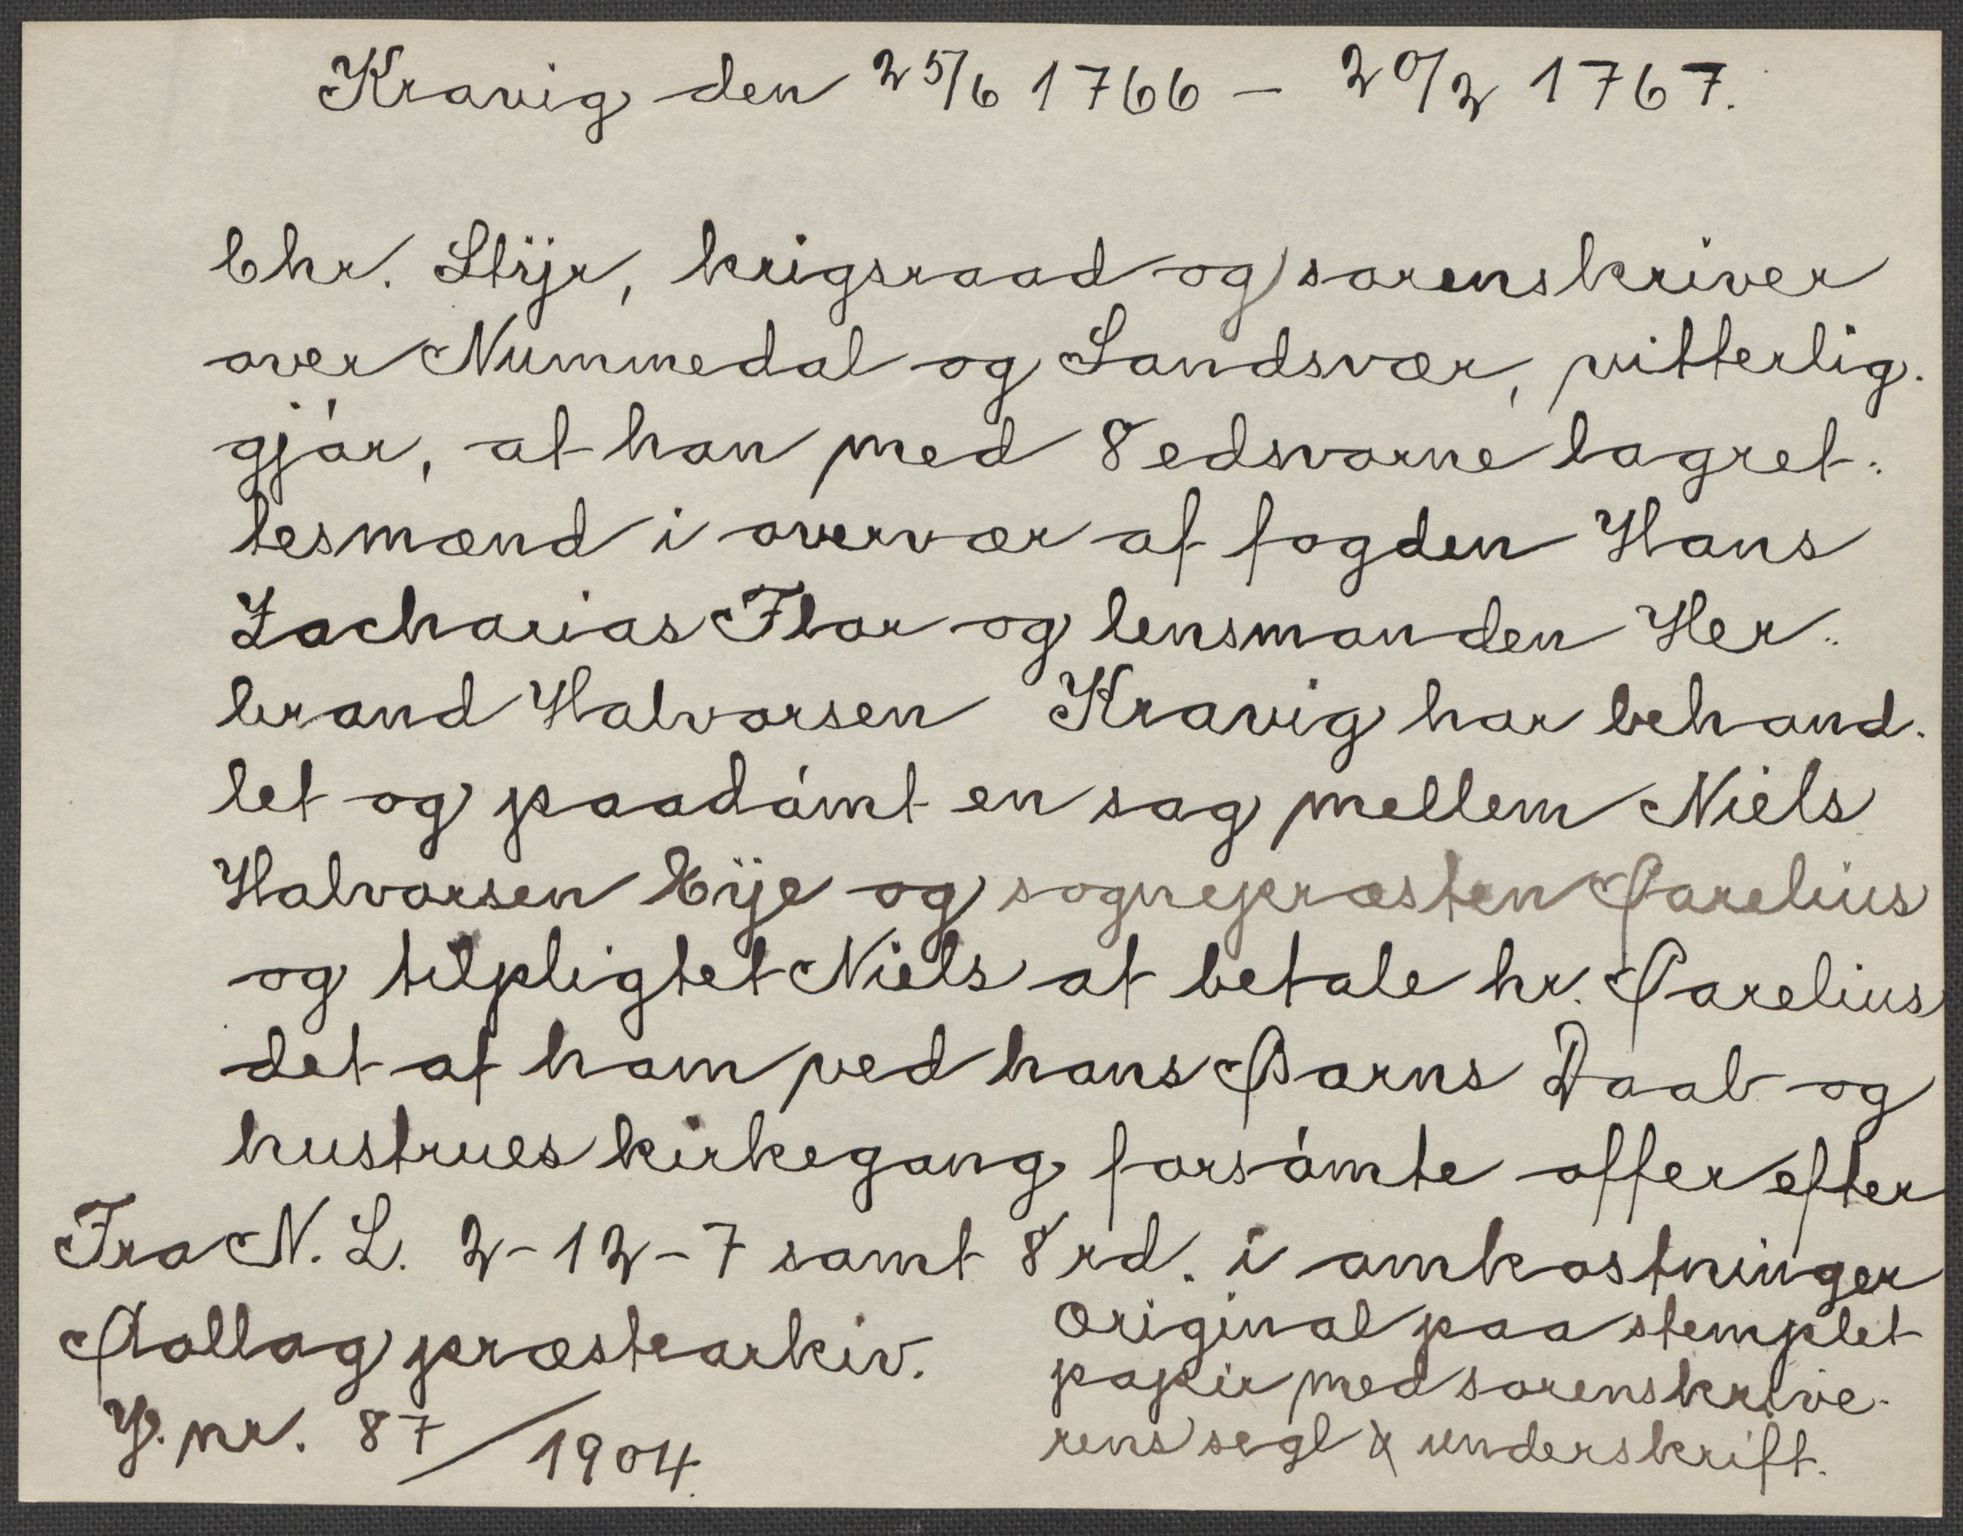 Kravig den 25/6 1766 - 20/2 1767.
Chr. Stÿr, krigsraad og sorenskriver
over Nummedal og Sandsvær, vitterlig-
gjór, at han med 8 edsvorne lagret-
tesmænd i overvær af fogden Hans
Zacharias Flor og lensmanden Her-
brand Halvorsen Kravig har behand-
let og paadómt en sag mellem Niels
Halvorsen Eÿe og sognepræsten Parelius
og tilpligtet Niels at betale hr. Parelius
det af ham ved hans Barns Daab og
hustrues kirkegang forsómte offer efter
Fra N. L. 2-12-7 samt 8 rd. i omkostninger
Rollag præstearkiv.
Original paa stemplet
papir med sorenskrive-
rens segl & underskrift.
J. nr. 87/1904.